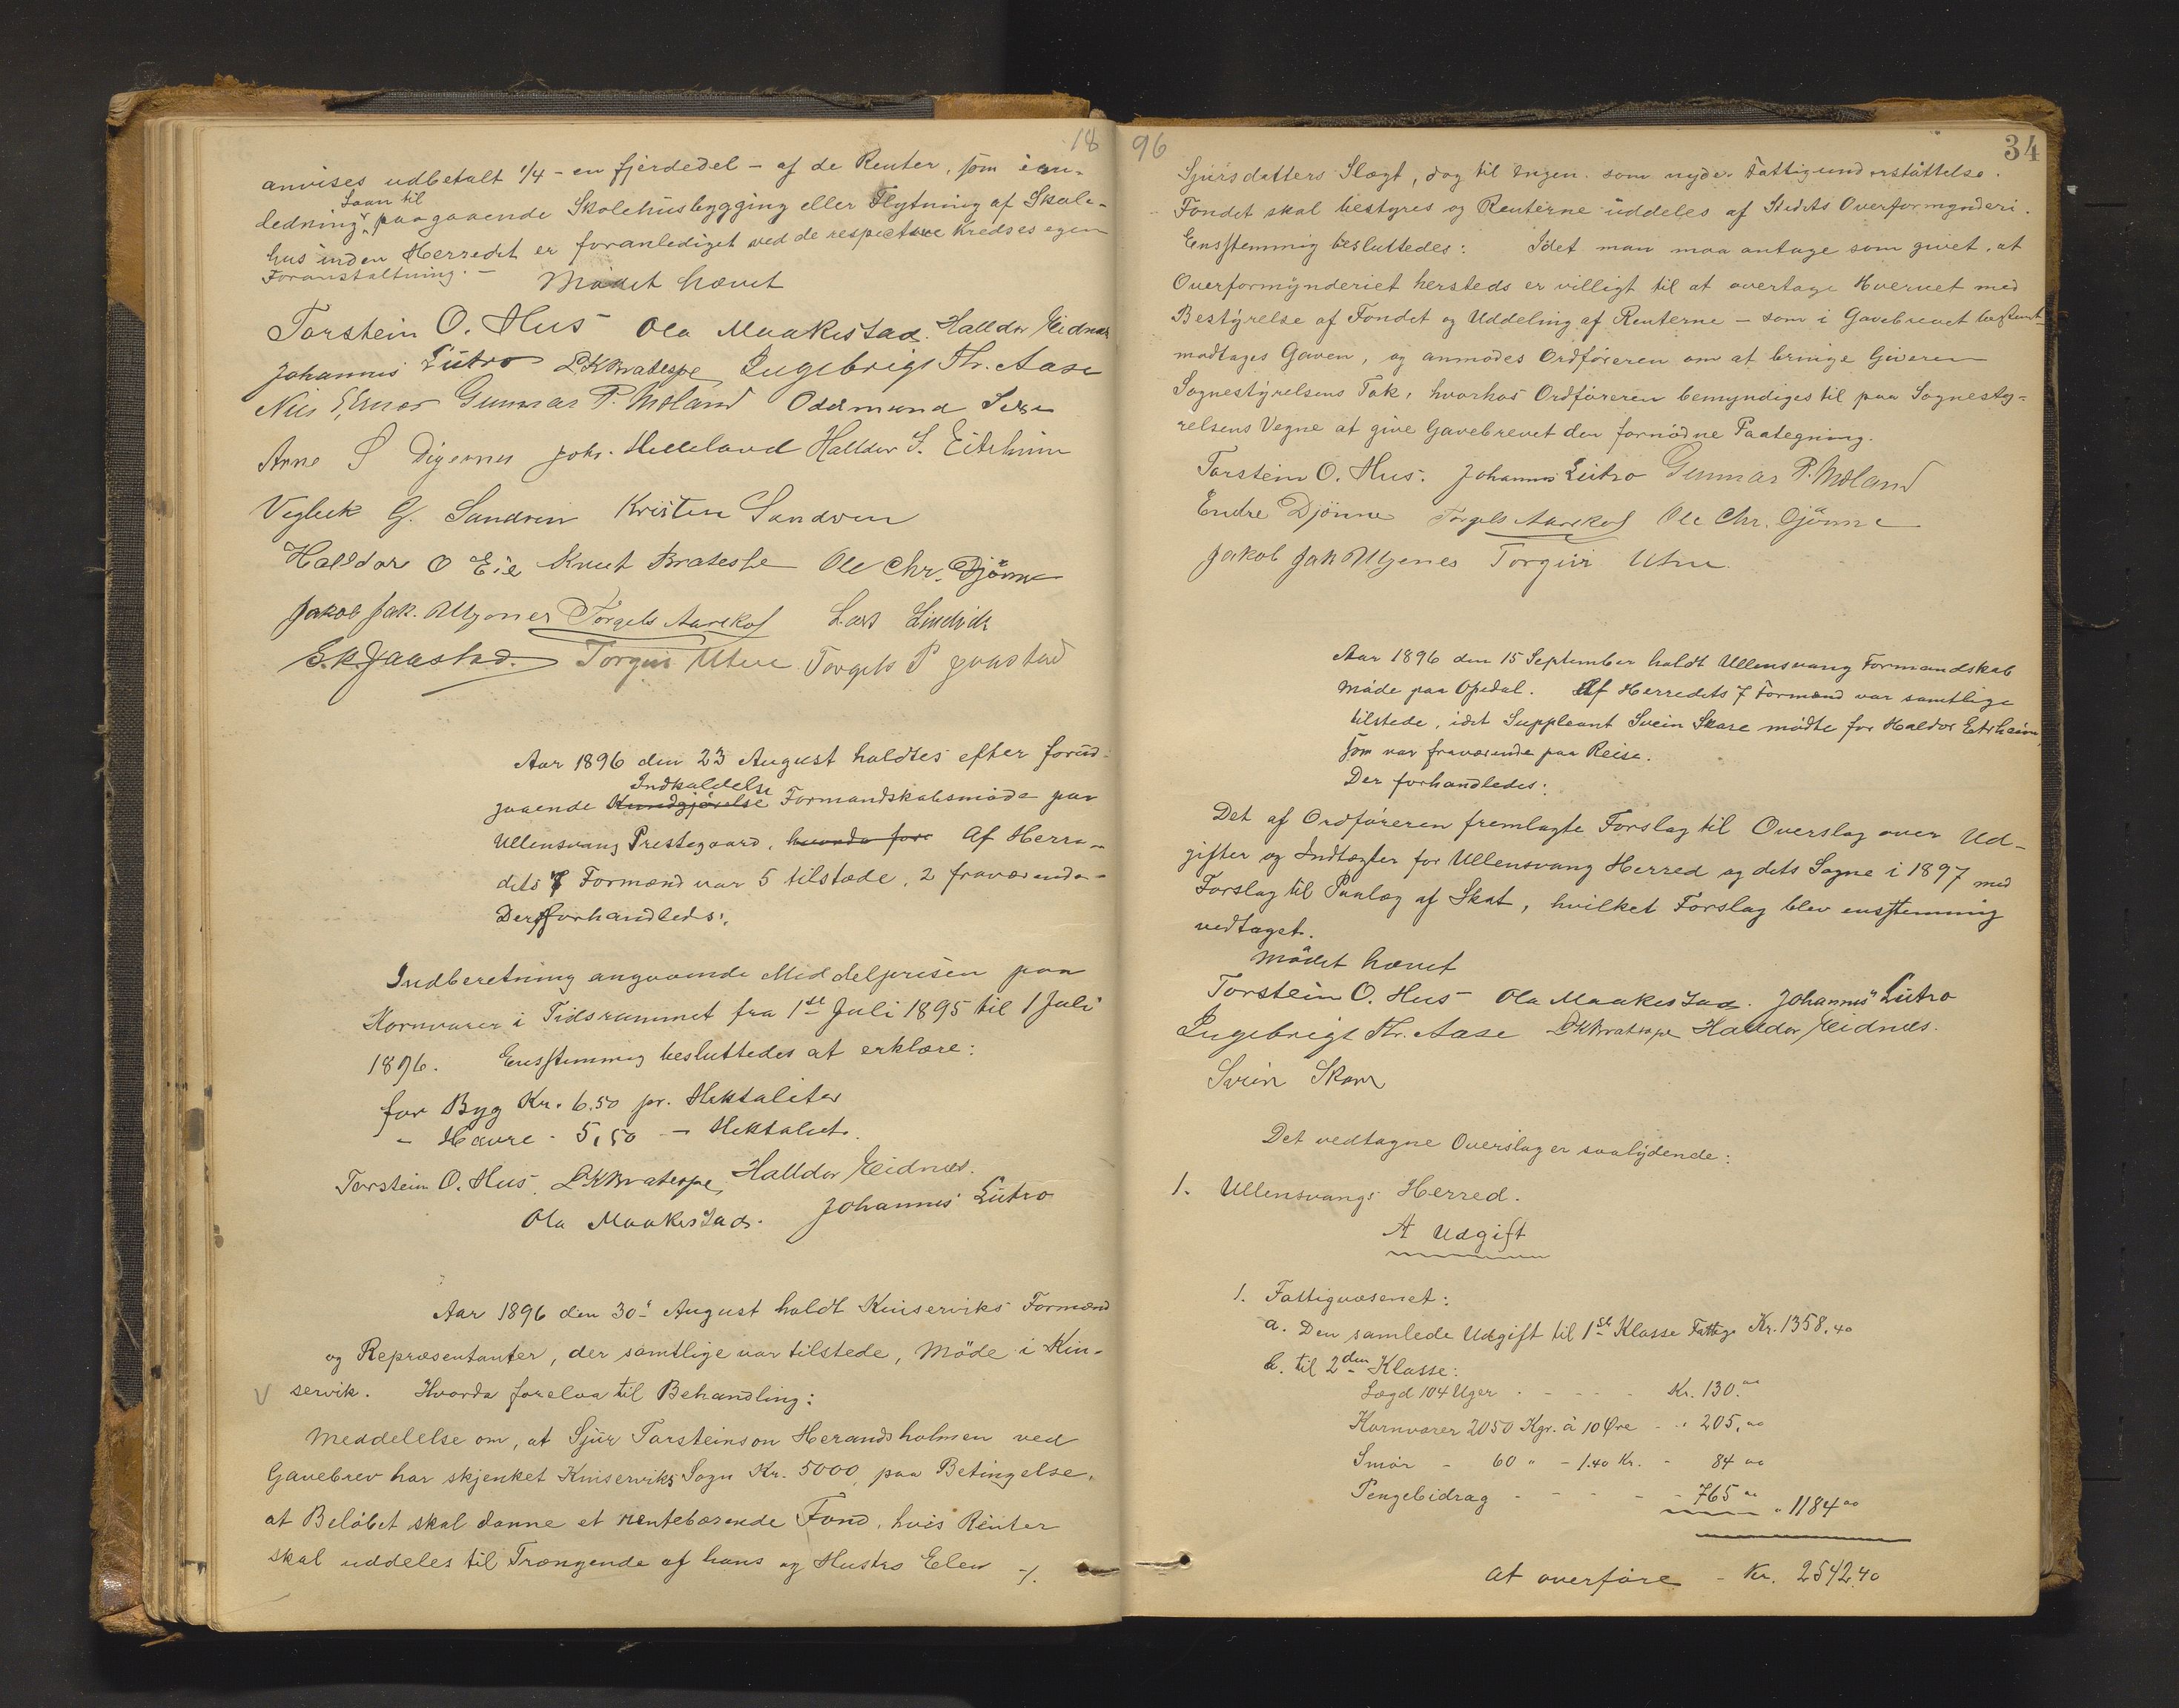 18
anvises udbetalt 1/4 - en fjerdedel - af de Renter, som i an-
Laan til
ledning paagaaende Skolehusbygging eller Flytning af Skole-
hus inden Herredet er foranlediget ved de respective Kredses egen
Foranstaltning. -
Mødet hævet
Torstein O. Hus Ola Maakestad. Halldor Eidnæs
Johannes Lutro LKBratespe Ingebrigt Th. Aase
Nils Gunnar P. Moland Oddmund
Arne S Digernes Johs. Helleland Halldor S. Eitrheim
Vigleik G. Sandven Kristen Sandven
Halldor O Eie Knut Bratespe Ole Chr. Djønne
Jakob Jak. Ulgenes Torgels Aarekol Lars Lindvik
S.K. Jaastad. Torgeir Utne Torgels P Jaastad
Aar 1896 den 23 August holdtes efter forud-
Indkaldelse
gaaende Kundgjørelse Formandskabsmøde paa
Ullensvang Prestegaard, hvorda fore Af Herre-
dets 7 Formænd var 5 tilstæde, 2 fraværende-
Der forhandleds:
Indberetning angaaende Middelprisen paa
Kornvarer i Tidsrummet fra 1ste Juli 1895 til 1 Juli
1896. Eensstemmig besluttedes at erklære:
for Byg Kr. 6.50 pr. Hektoliter
- Havre - 5,50 - Hektolit.
Torstein O. Hus. LKBratespe, Halldor Eidnæs.
Ola Maakestad. Johannes Lutro
Aar 1896 den 30te August holdt Kinserviks Formænd
og Repræsentanter, der samtlige var tilstede, Møde i Kin-
servik. Hvorda forelaa til Behandling:
Meddelelse om, at Sjur Torsteinson Herandsholmen ved
Gavebrev har skjenket Kinserviks Sogn Kr. 5000, paa Betingelse,
at Beløbet skal danne et rentebærende Fond, hvis Renter
skal uddeles til Trængende af hans og Hustro Elen ./.
96
34
Sjursdatters Slægt, dog til Ingen som nyder Fattigunderstøttelse.
Fondet skal bestyres og Renterne uddeles af Stedets Overformynderi.
Eensstemmig besluttedes: Idet man maa antage som givet, at
Overformynderiet hersteds er villigt til at overtage Hvervet med
Bestyrelse af Fondet og Uddeling af Renterne - som i Gavebrevet bestemt -
modtages Gaven, og anmodes Ordføreren om at bringe Giveren
Sognestyrelsens Tak, hvorhos Ordføreren bemyndiges til paa Sognesty-
relsens Vegne at give Gavebrevet den fornødne Paategning.
Torstein O. Hus. Johannes Lutro Gunnar P. Moland
Endre Djønne Torgels Aarekol Ole Chr. Djønne
Jakob Jak Ulgenes Torgeir Utne
Aar 1896 den 15 September holdt Ullensvang Formandskab
Møde paa Opedal. Af Herredets 7 Formænd var samtlige
tilstede, idet Suppleant Svein Skare mødte for Haldor Eitrheim,
som var fraværende paa Reise.
Der forhandledes:
Det af Ordføreren fremlagte Forslag til Overslag over Ud-
gifter og Indtægter for Ullensvang Herred og dets Sogne i 1897 med
Forslag til Paalæg af Skat, hvilket Forslag blev ensstemmig
vedtaget.
Mødet hævet
Torstein O. Hus Ola Maakestad. Johannes Lutro
Ingebrigt Th. Aase LKBratespe Halldor Eidnæs.
Svein Skare
Det vedtagne Overslag er saalydende:
1. Ullensvangs Herred.
A Udgift
1. Fattigvæsenet:
a. Den samlede Udgift til 1ste Klasse Fattige Kr. 1358.40
b. til 2den Klasse:
Lægd 104 Uger - - - - Kr. 130.00
Kornvarer 2050 Kgr. à 10 Øre - " 205.00
Smør - 60 " - 1.40 Kr. - 84 00
Pengebidrag - - - - - 765 00 " 1184 00
At overføre - Kr. 2542.40